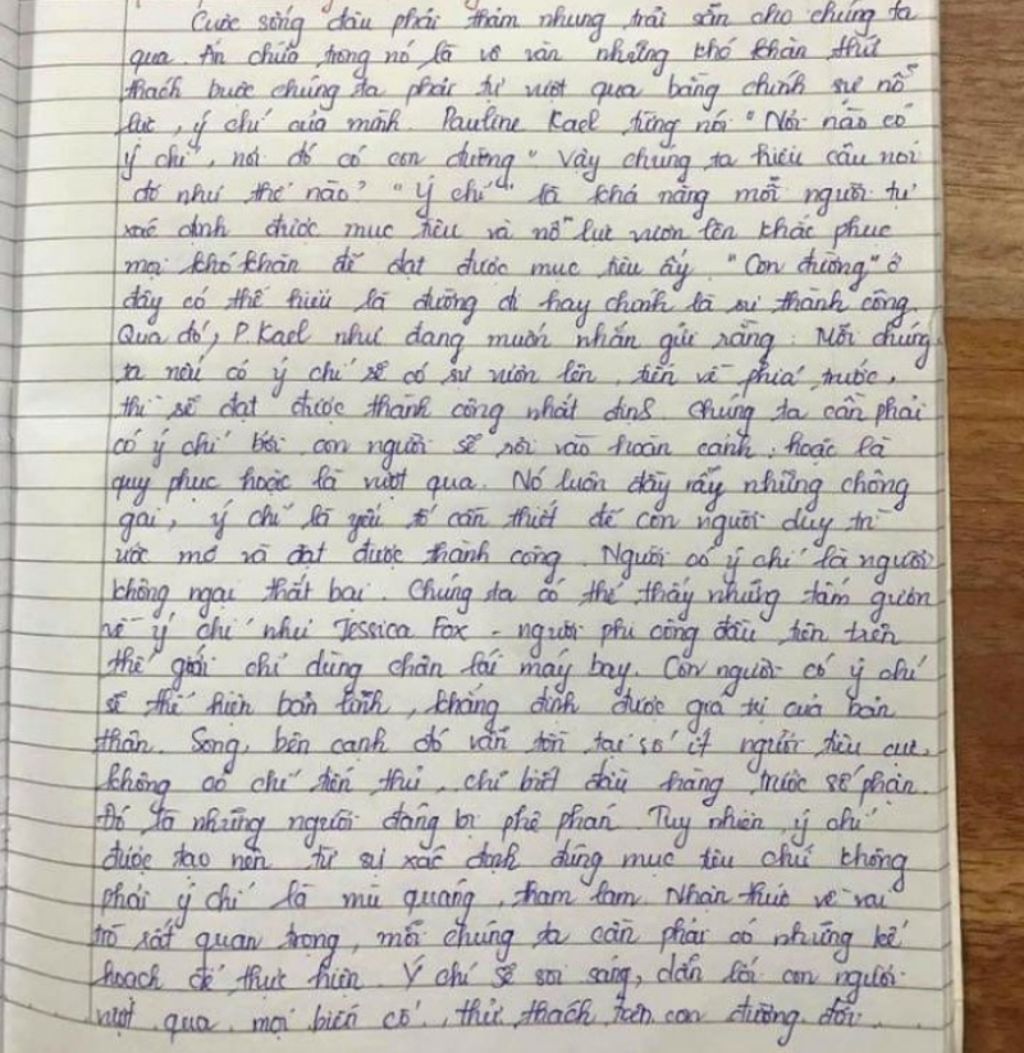 Cuộc sống đâu phải thảm nhung trải sẵn cho chúng ta
qua. Ẩn chứa trong nó là vô vàn những khó khăn thử
thách buộc chúng ta phải tự vượt qua bằng chính sự nỗ
lực, ý chí của mình. Pauline Kael từng nói "Nơi nào có
ý chí, nơi đó có con đường" Vậy chúng ta hiểu câu nói
đó như thế nào? "Ý chí" là khả năng mỗi người tự
xác định được mục tiêu và nỗ lực vươn lên khắc phục
mọi khó khăn để đạt được mục tiêu ấy. "Con đường" ở
đây có thể hiểu là đường đi hay chính là sự thành công.
Qua đó, P. Kael như đang muốn nhắn gửi rằng: Mỗi chúng
ta nếu có ý chí sẽ có sự vươn lên, tiến về phía trước,
thì sẽ đạt được thành công nhất định. Chúng ta cần phải
có ý chí bởi con người sẽ rơi vào hoàn cảnh: hoặc là
quy phục hoặc là vượt qua. Nó luôn đầy rẫy những chông
gai, ý chí là yếu tố cần thiết để con người duy trì
ước mơ và đạt được thành công. Người có ý chí là người
không ngại thất bại. Chúng ta có thể thấy những tấm gương
về ý chí như Jessica Fox - người phi công đầu tiên trên
thế giới chỉ dùng chân lái máy bay. Con người có ý chí
sẽ thể hiện bản lĩnh, khẳng định được giá trị của bản
thân. Song, bên cạnh đó vẫn tồn tại số ít người tiêu cực,
không có chí tiến thủ, chỉ biết đầu hàng trước số phận.
Đó là những người đáng bị phê phán. Tuy nhiên, ý chí
được tạo nên từ sự xác định đúng mục tiêu chứ không
phải ý chí là mù quáng, tham lam. Nhận thức về vai
trò rất quan trọng, mỗi chúng ta cần phải có những kế
hoạch để thực hiện. Ý chí sẽ soi sáng, dẫn lối con người
vượt qua mọi biến cố, thử thách trên con đường đời.